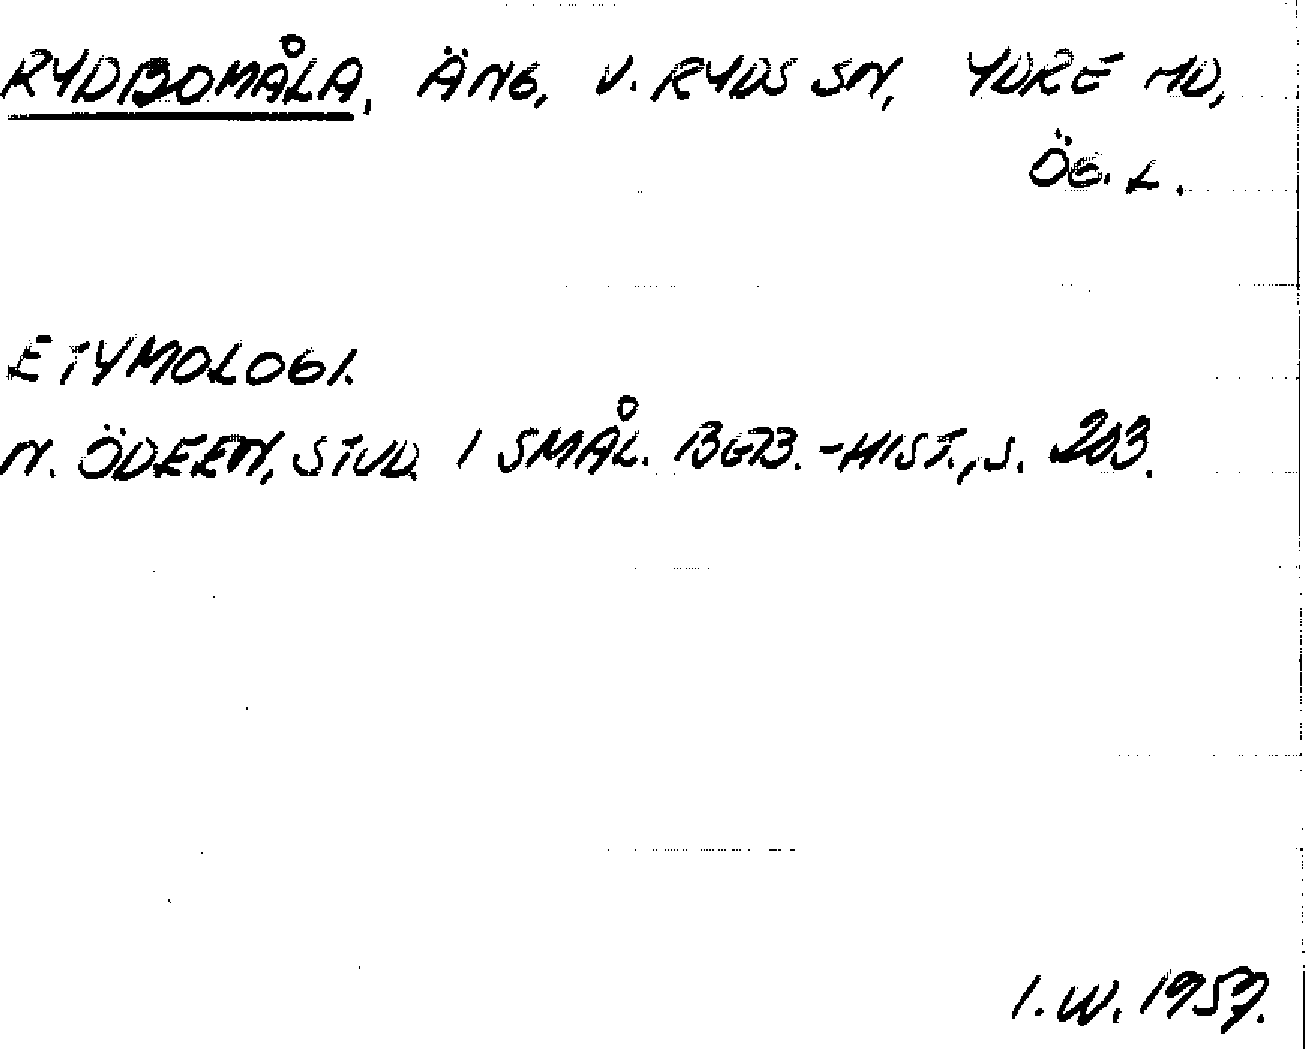 RYDBOMÅLA, ÄNG, V. RYDS SN, YDRE HD,
ÖG. L.
ETYMOLOGI.
N. ÖDEEN, STUD. I SMÅL. BGB.-HIST., S. 203.
I. W. 1957.